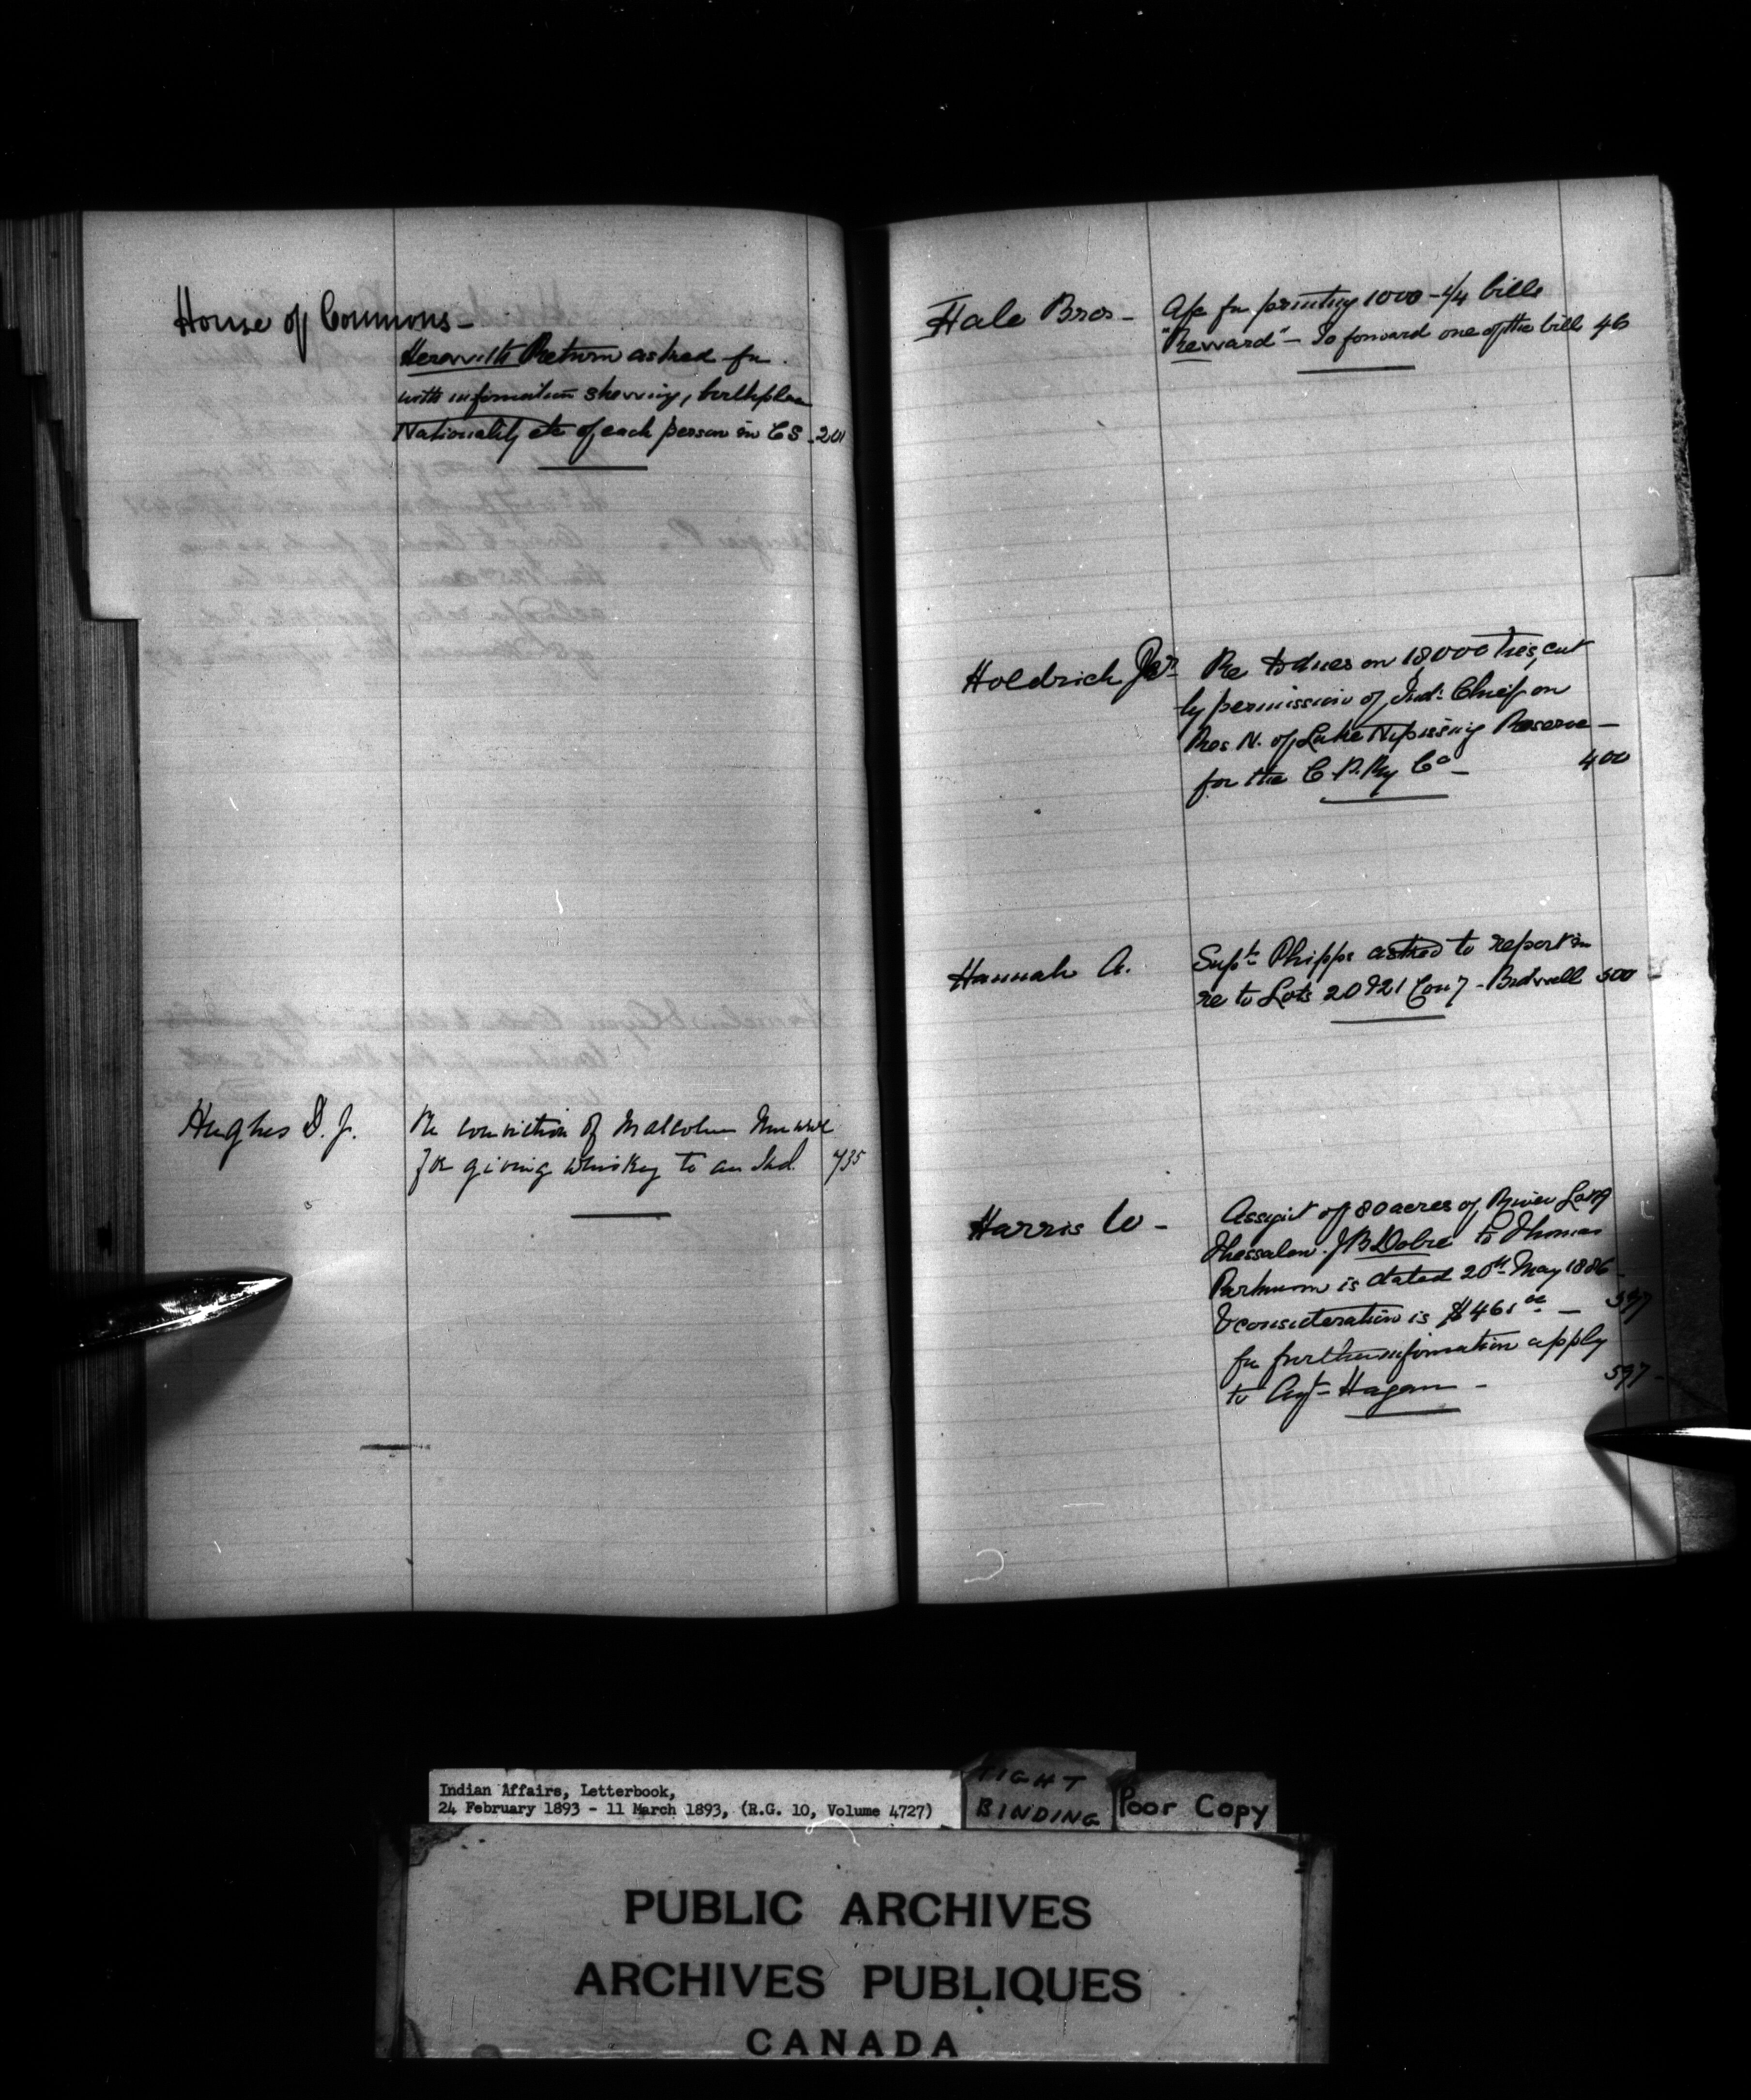 House of Commons -
Herewith Return asked for
with information shewing, birthplace
Nationality etc of each person in CS - 201
Hughes D. J.
Re conviction of Malcolm
for giving whiskey to an Ind. 735
Hale Bros - A/c for printing 1000 - 1/4 bills
"Reward" - To forward one of the bills 46
Holdrich Re to dues on 18,000 ties, cut
by permission of Ind: Chief on
Res. N. of Lake Nipissing Reserve -
for the C. P. Ry Co - 400
Hannah A. Supt. Phipps asked to report in
re to Lots 20 & 21 Con 7 - Bidwell 500
Harris W - Assignt of 80 acres of River
Thessalon. J B Dobie to Thomas
is dated 20th May 1886 -
& consideration is $461 - 597
for further information apply
to Agt - Hagan - 597 -
Indian Affairs, Letterbook,
24 February 1893 - 11 March 1893, (R.G. 10, Volume 4727)
TIGHT
BINDING
Poor Copy
PUBLIC ARCHIVES
ARCHIVES PUBLIQUES
CANADA